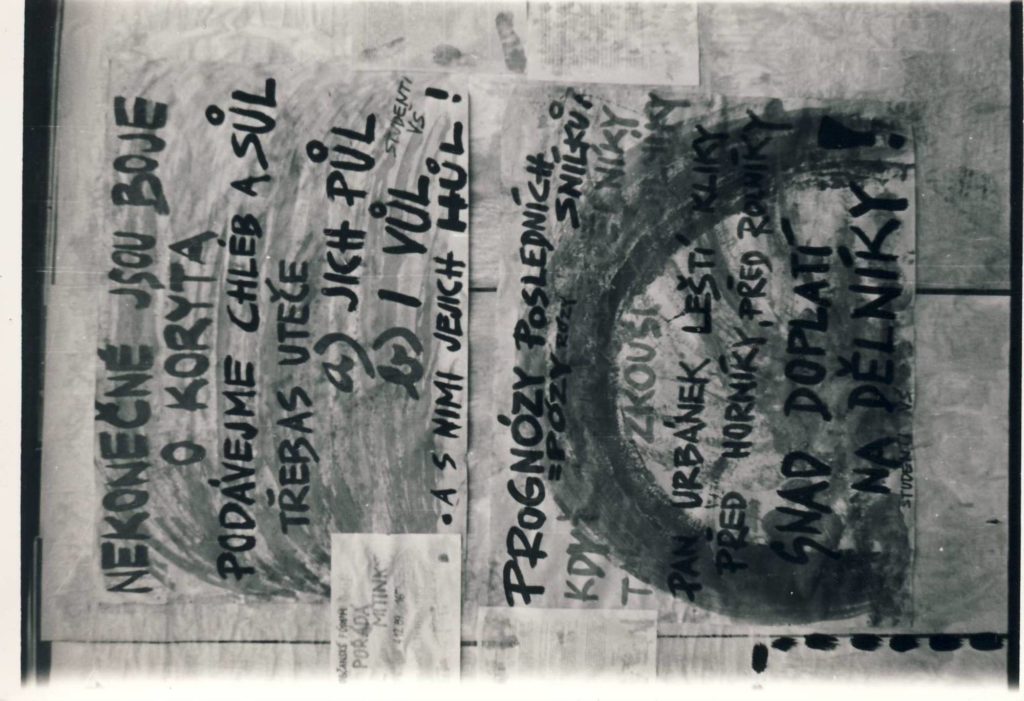 NEKONEČNÉ JSOU BOJE
O KORYTA
PODÁVEJME CHLÉB A SŮL
TŘEBAS UTEČE
a) JICH PŮL
b) I VŮL
• A S NIMI JEJICH HŮL!
STUDENTI
VŠ
PROGNÓZY POSLEDNÍCH
=PÓZY RÓZY SNÍLKŮ
KDY
ZKOUŠÍ
PAN URBÁNEK LEŠTÍ KLIKY
PŘED HORNÍKY, PŘED ROLNÍKY
SNAD DOPLATÍ
NA DĚLNÍKY!
STUDENTI VŠ
POŘÁDÁ
MÍTINK